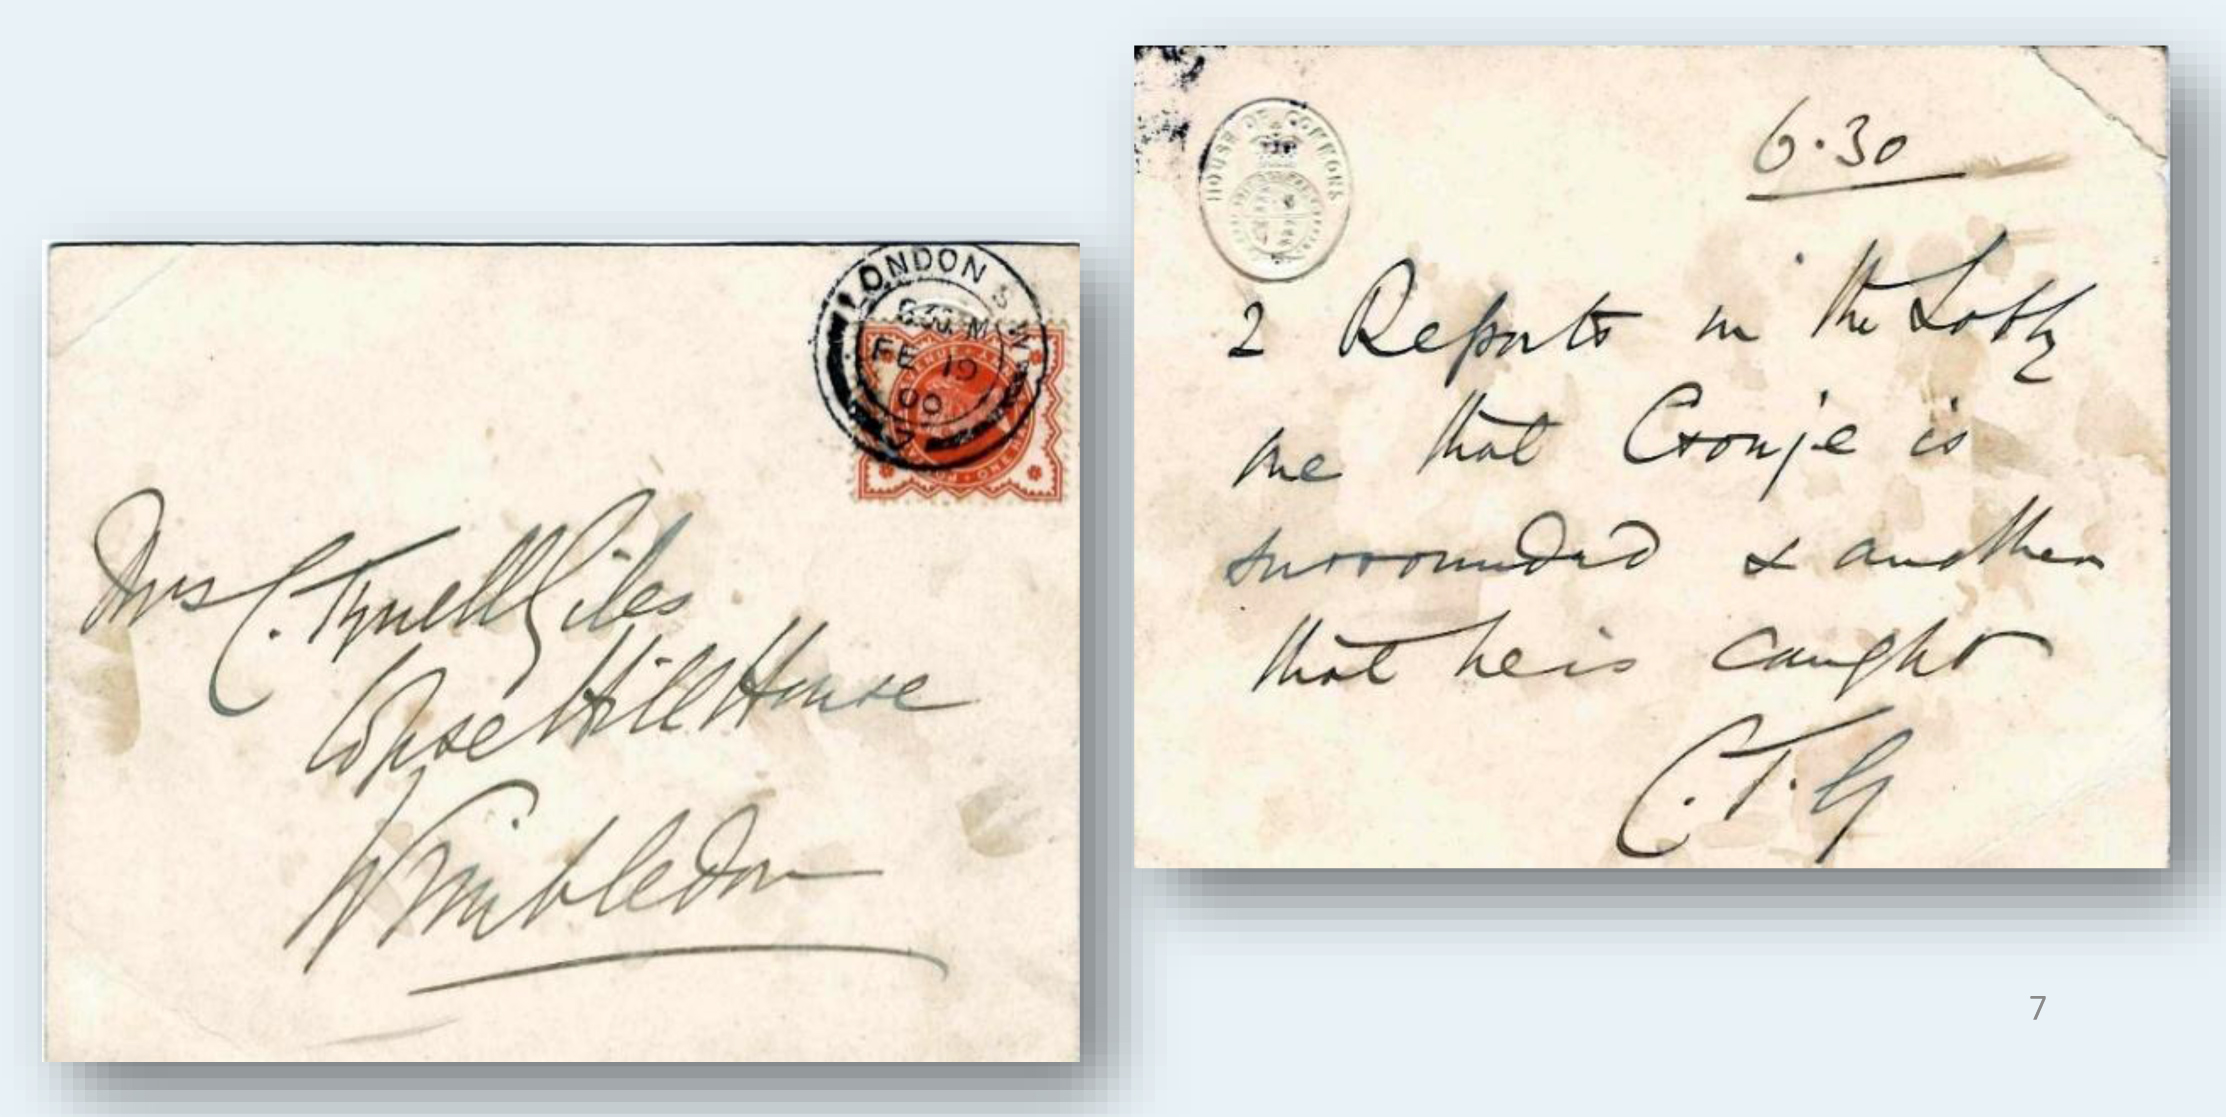 LONDON S.W
6.30 PM
FE 19
00
7
Mrs C. Tyrrell Giles
Copse Hill House
Wimbledon
HOUSE OF COMMONS
6.30
2 Reports in the Lobby
one that Cronje is
surrounded & another
that he is caught
C.T.G
7